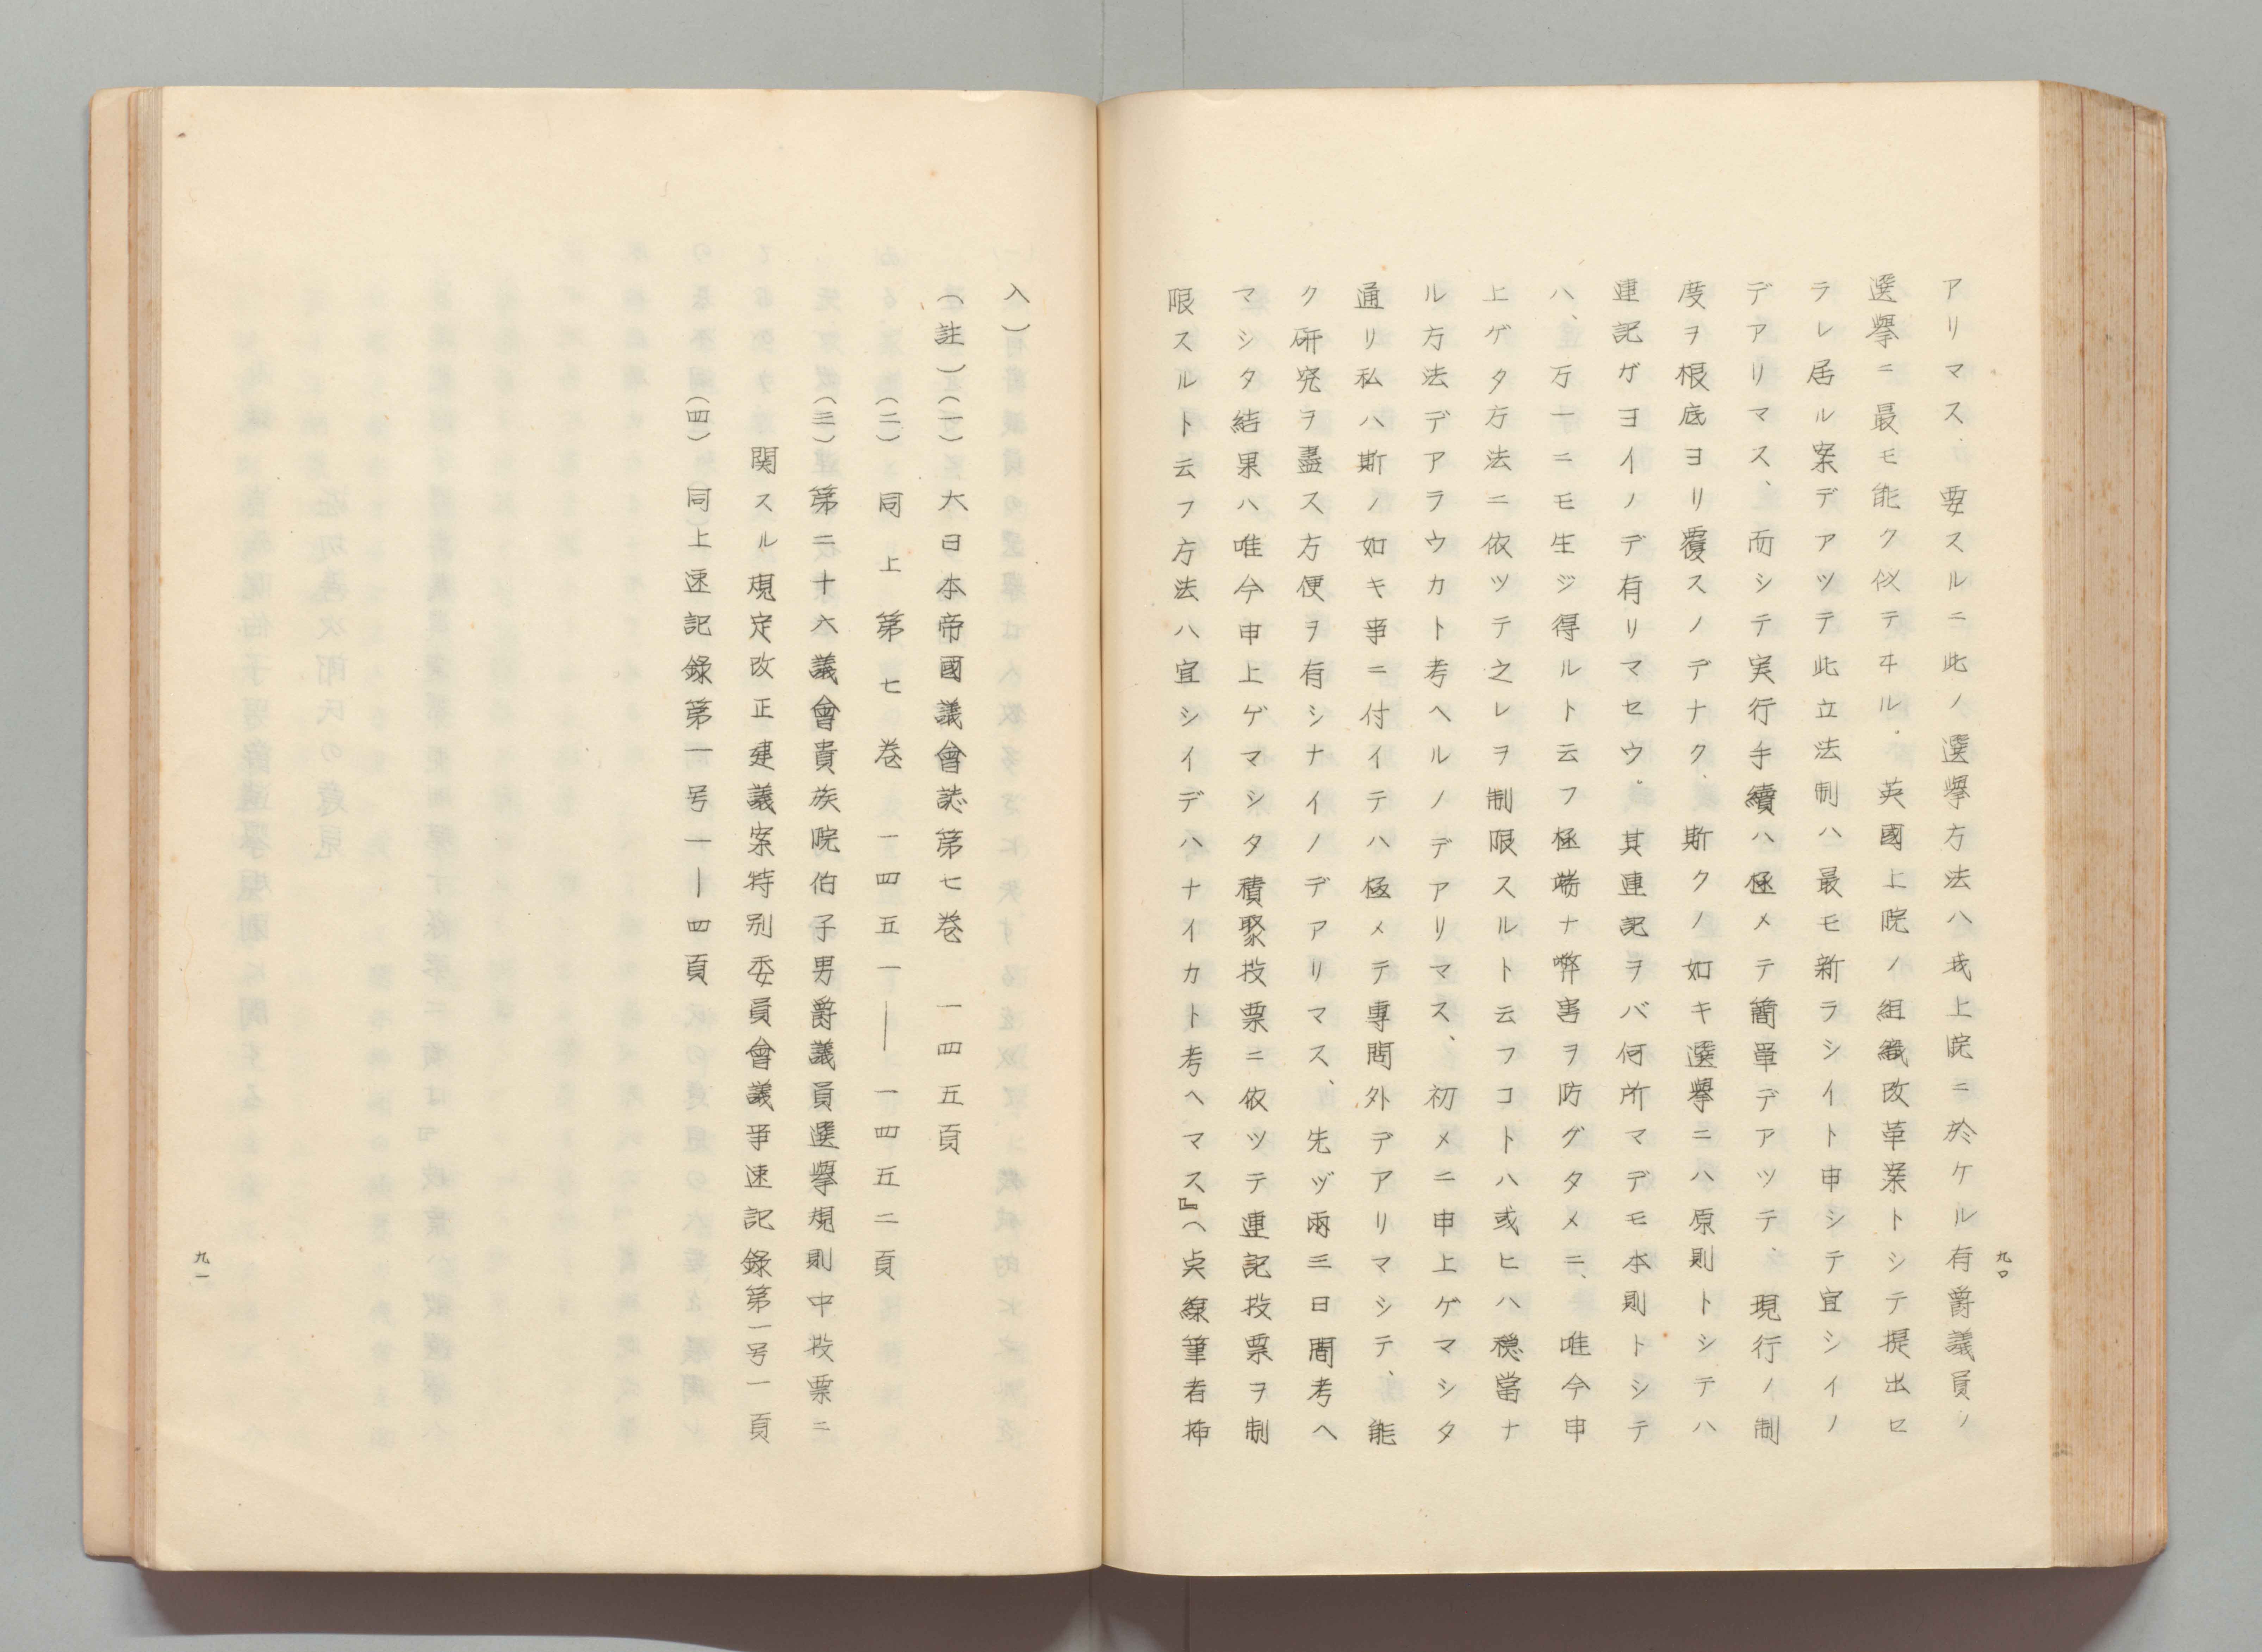 九〇
アリマス、要スルニ此ノ選擧方法ハ我上院ニ於ケル有爵議員ノ
選擧ニ最モ能ク似テヰル、英國上院ノ組織改革案トシテ提出セ
ラレ居ル案デアツテ此立法制ハ最モ新ラシイト申シテ宜シイノ
デアリマス、而シテ実行手續ハ極メテ簡單デアツテ、現行ノ制
度ヲ根底ヨリ覆スノデナク、斯クノ如キ選擧ニハ原則トシテハ
連記ガヨイノデ有リマセウ。其連記ヲバ何所マデモ本則トシテ
ハ、万一ニモ生ジ得ルト云フ極端ナ弊害ヲ防グタメニ、唯今申
上ゲタ方法ニ依ツテ之レヲ制限スルト云フコトハ或ヒハ穏當ナ
ル方法デアラウカト考ヘルノデアリマス、初メニ申上ゲマシタ
通リ私ハ斯ノ如キ事ニ付イテハ極メテ專問外デアリマシテ、能
ク研究ヲ盡ス方便ヲ有シナイノデアリマス、先ヅ兩三日間考ヘ
マシタ結果ハ唯今申上ゲマシタ積聚投票ニ依ツテ連記投票ヲ制
限スルト云フ方法ハ宜シイデハナイカト考ヘマス』（点線筆者挿
入）
（註）（一）大日本帝國議會誌第七巻　一四五頁
（二）同上第七巻　一四五一——一四五二頁
（三）第二十六議會貴族院伯子男爵議員選擧規則中投票ニ
関スル規定改正建議案特別委員會議事速記録第一号一頁
（四）同上速記録第一号一—四頁
九一